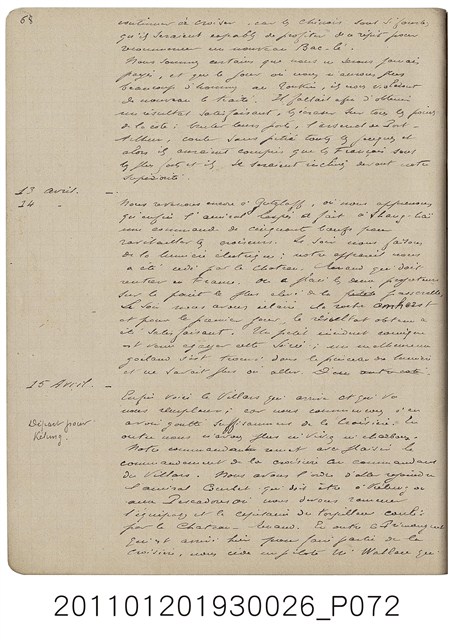 68
continuer à croiser, car les Chinois sont si fourbes
qu'ils seraient capables de profiter de ce répit pour
recommencer un nouveau Bac-Lé.
Nous sommes certains que nous ne serons jamais
payés, et que le jour où nous n'aurons plus
beaucoup d'hommes au Tonkin, ils nous violeront
de nouveau le traité. Il fallait afin d'obtenir
un résultat satisfaisant, écraser sur tous les points
de la côte; leurs ports, l'arsenal de Port-
Arthur, couler sans pitié toutes les jonques et
alors ils auraient compris que les Français sont
les plus forts et ils se seraient inclinés devant notre
supériorité.
13 avril. —
14 -
Nous revenons encore à Gutzlaff, où nous apprenons
qu'enfin l'amiral Lespès a fait à Shang-haï
une commande de cinquante bœufs pour
ravitailler les croiseurs. Le soir nous faisons
de la lumière électrique; notre appareil nous
a été cédé par le Chateau-Renaud qui doit
rentrer en France. On a placé les deux projecteurs
sur le point le plus élevé de la passerelle.
Le soir nous avons éclairé et
et pour le premier jour, le résultat obtenu a
été satisfaisant. Un petit incident comique
est venu égayer cette soirée; un malheureux
goéland s'est trouvé dans le pinceau de lumière
et ne savait plus où aller.
15 Avril. —
Départ pour
Kélung.
Enfin voici le Villars qui arrive et qui va
nous remplacer; car nous commençons d'en
avoir goûté suffisamment de la croisière; en
outre nous n'avons plus ni vivres ni charbon.
Notre commandant remet avec plaisir le
commandement de la croisière au commandant
du Villars. Nous avons l'ordre d'aller rejoindre
l'amiral Courbet qui doit être à Kélung ou
aux Pescadores où nous devons ramener
l'équipage et le capitaine du torpilleur coulé
par le Chateau-Renaud. En outre le
qui est arrivé hier pour faire partie de la
croisière, nous cède un pilote Mr Wallace qui
201101201930026_P072